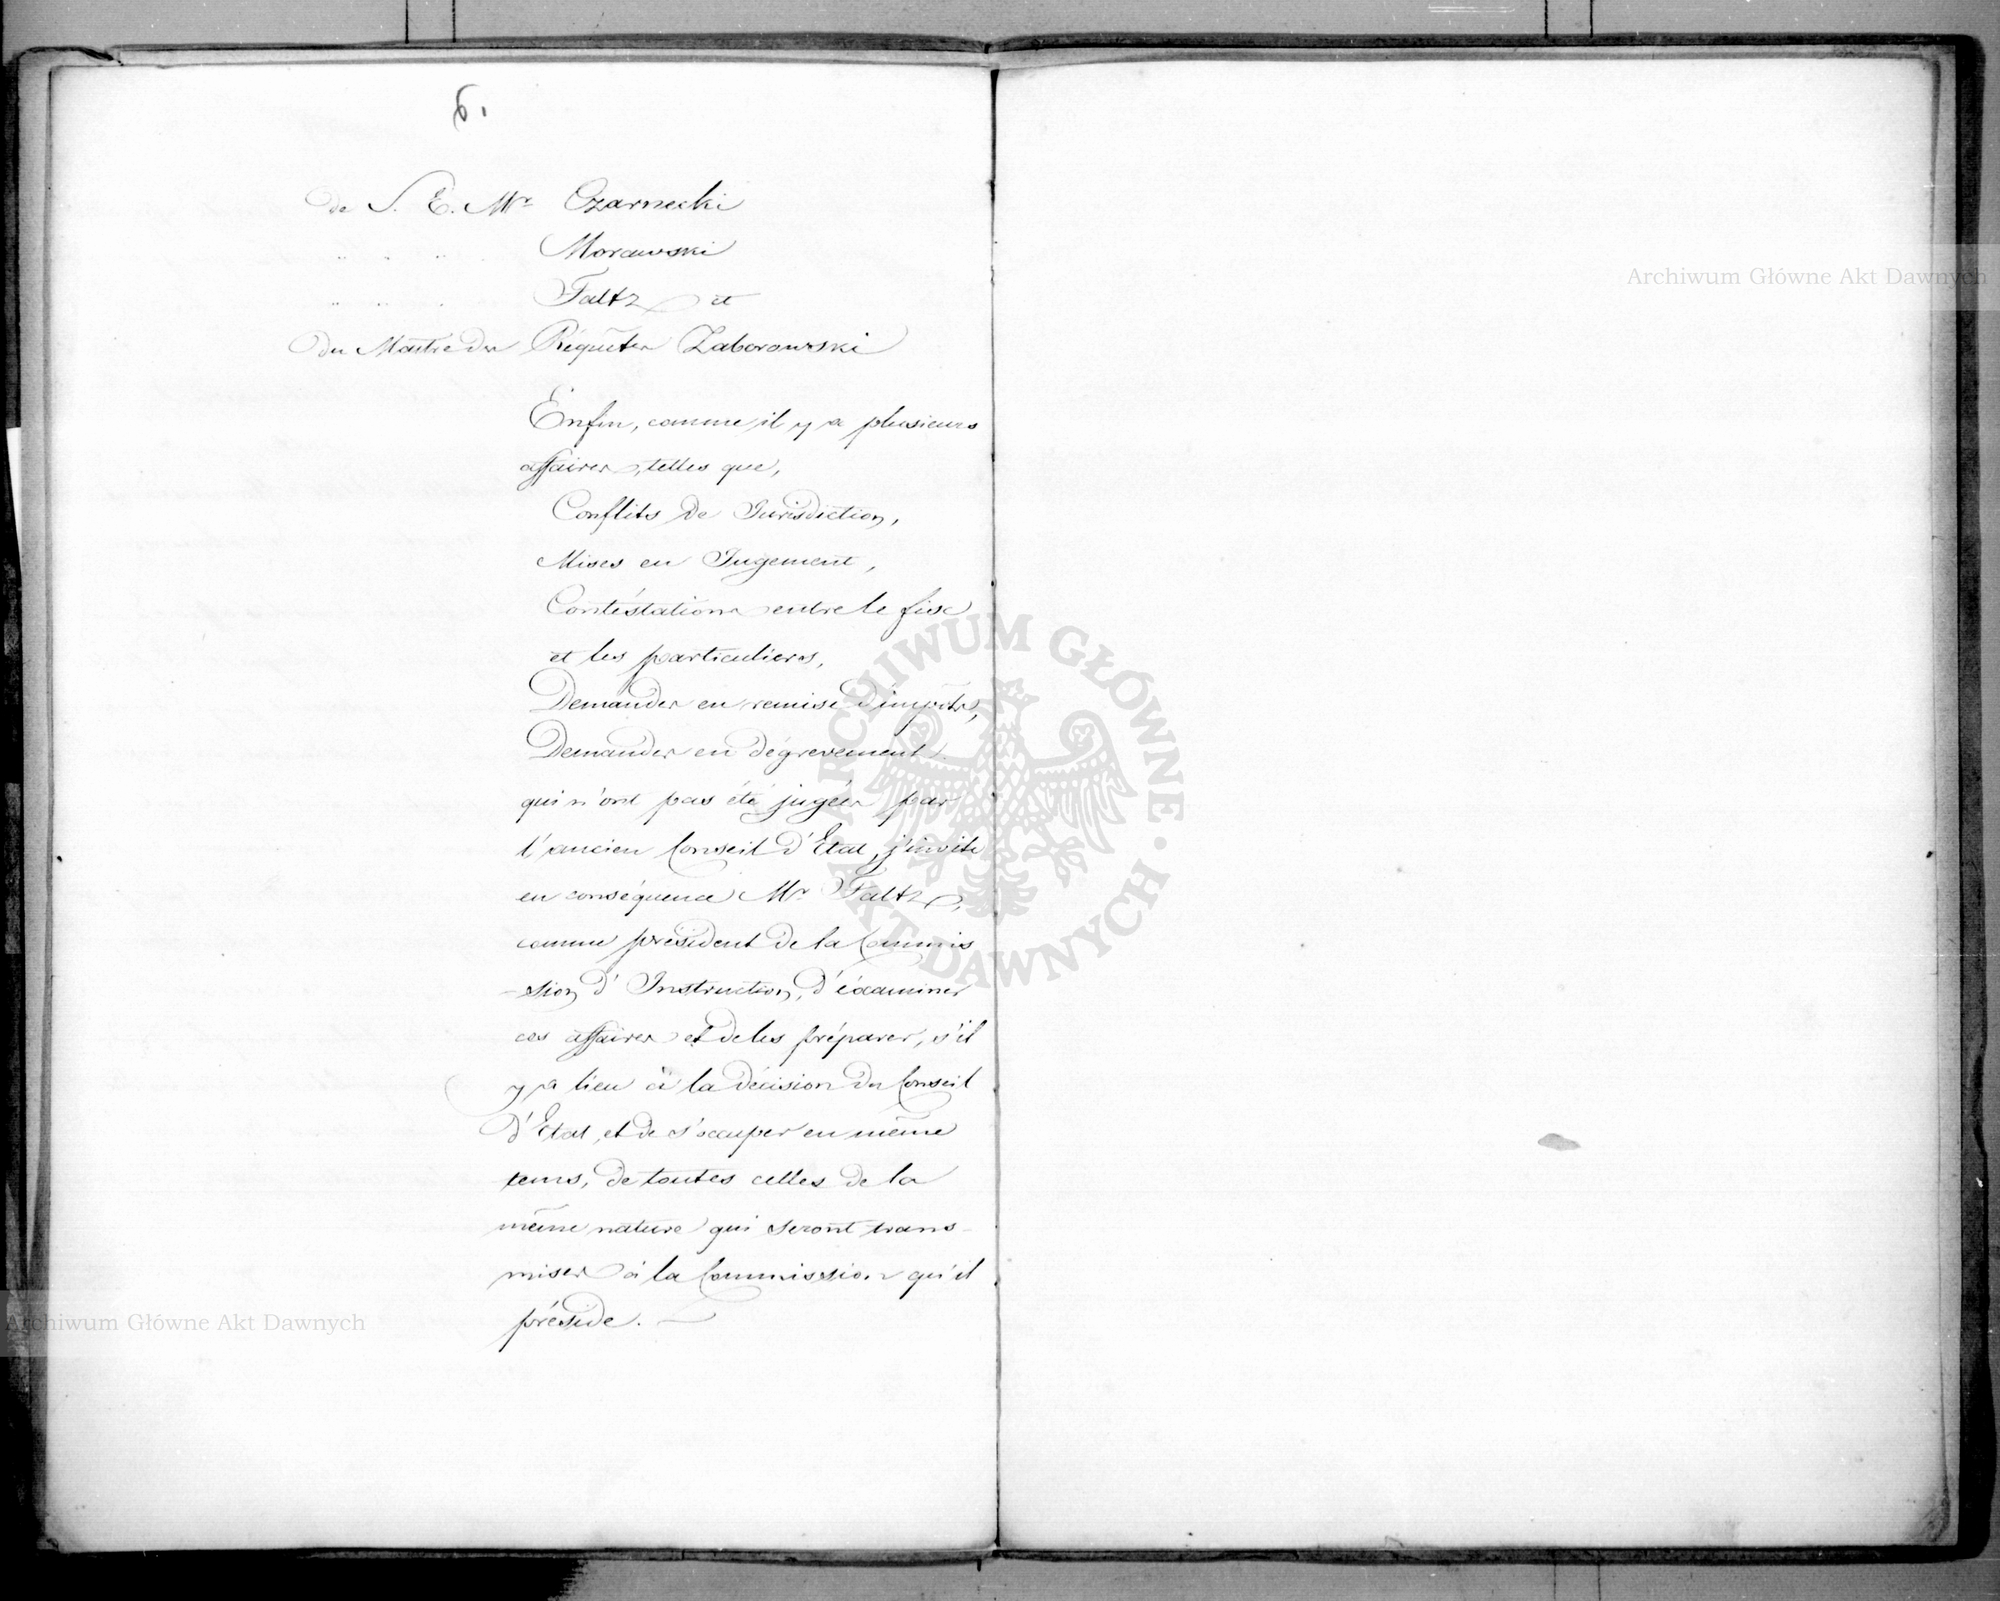 6.
de S. E. Mr Czarnecki
" " " " Morawski
" " " Faltz et
du Maitre des Réquêtes Zaborowski
Enfin, comme il y a plusieurs
affaires, telles que,
Conflits de Jurisdiction,
Mises en Jugement,
Contéstations entre le fisc
et les particuliers,
Demandes en remise d'impôts,
Demandes en dégrevement
qui n'ont pas été jugées par
l'ancien Conseil d'Etat, j'invite
en conséquence Mr Faltz,
comme président de la Commis
-sion d'Instruction, d'éxaminer
ces affaires et de les préparer, s'il
y a lieu à la décision du Conseil
d'Etat, et de s'occuper en même
tems, de toutes celles de la
même nature qui seront trans-
mises à la Commission qu'il
préside. —
Archiwum Główne Akt Dawnych
ARCHIWUM GŁÓWNE · AKT DAWNYCH ·
Archiwum Główne Akt Dawnych